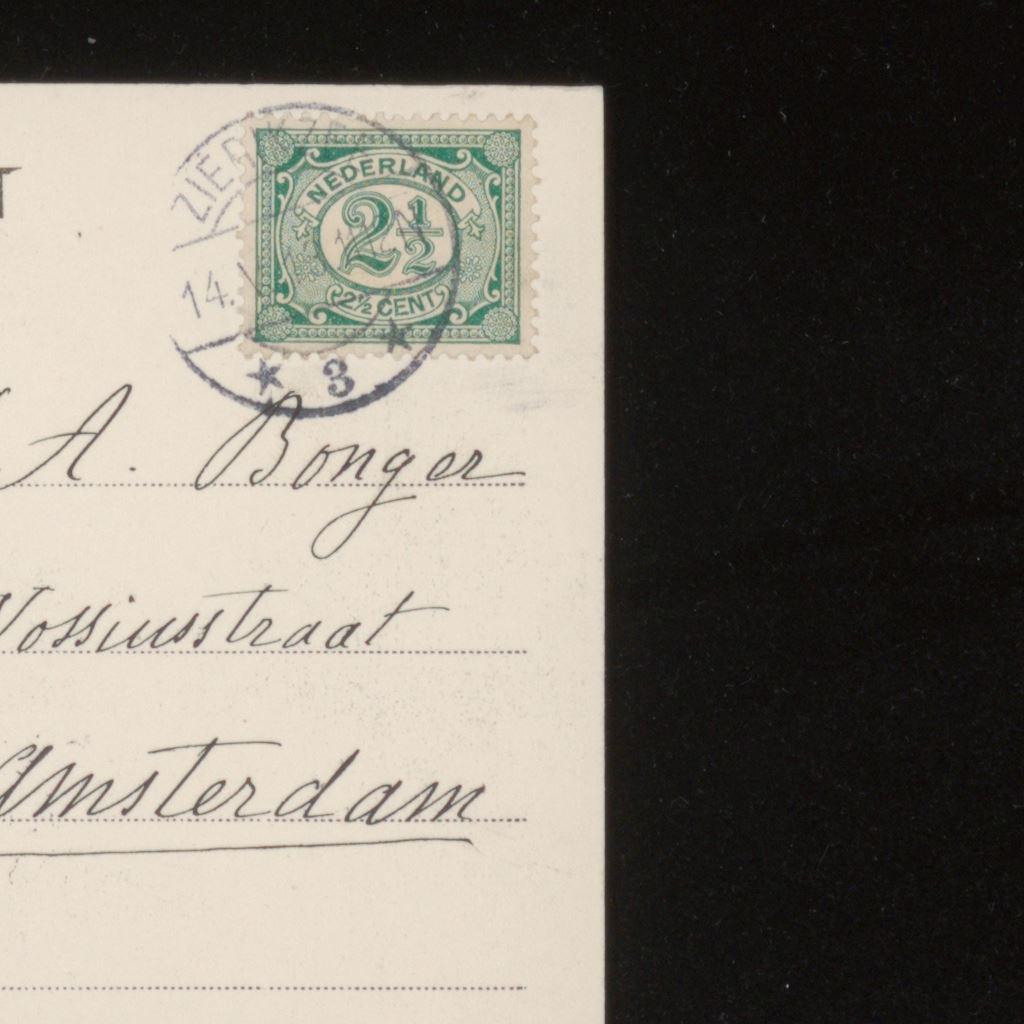 T
ZIERIKZEE
NEDERLAND
2½
14.
2½ CENT
3
A. Bonger
Vossiusstraat
Amsterdam